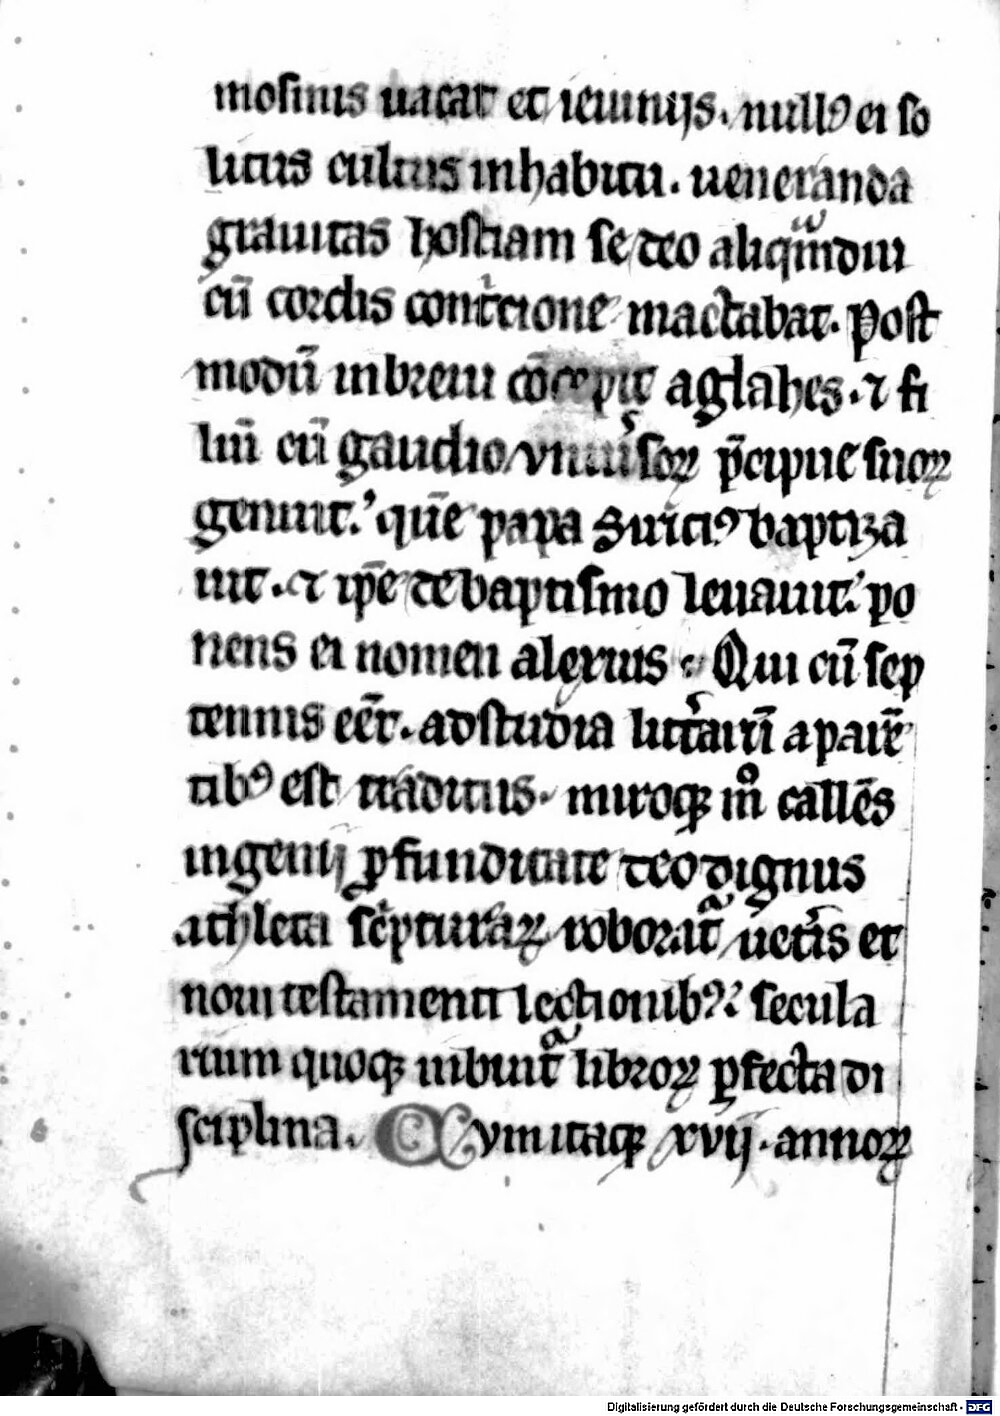 mosinis uacat et ieiunijs. nullꝰ ei so
litus cultus in habitu. ueneranda
grauitas hostiam se deo aliqͫdiu
cū cordis contͥcione mactabat. Post
modū in breui cōcepit aglahes. ⁊ fi
liū cū gaudio vniuͥsoꝝ p̄cipue suoꝝ
genuit. quē papa Siricꝰ baptiza
uit. ⁊ ip̄e de baptismo leuauit. po
nens ei nomen alexius. Qui cū sep
tennis eēt. ad studia litt̄arū a parē
tibꝰ est traditus. miroqꝫ mͦ callēs
ingenij ꝓfunditate deo dignus
athleta scͥpturaꝝ roboratᷓ uetͥis et
noui testamenti lectionibꝰ. secula
rium quoqꝫ inbuitᷓ libroꝝ ꝑfecta di
sciplina. Cvm itaqꝫ xvij. annoꝝ
Digitalisierung gefördert durch die Deutsche Forschungsgemeinschaft - DFG